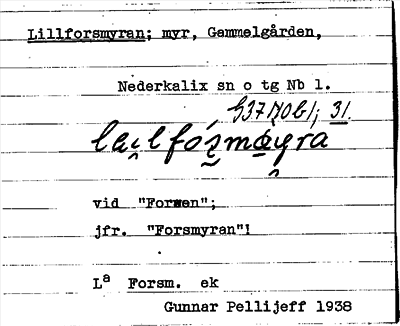 Lillforsmyran; myr, Gammelgården,
Nederkalix sn o tg Nb l.
31.
vid "Forsen";
jfr. "Forsmyran"!
La Forsm. ek
Gunnar Pellijeff 1938